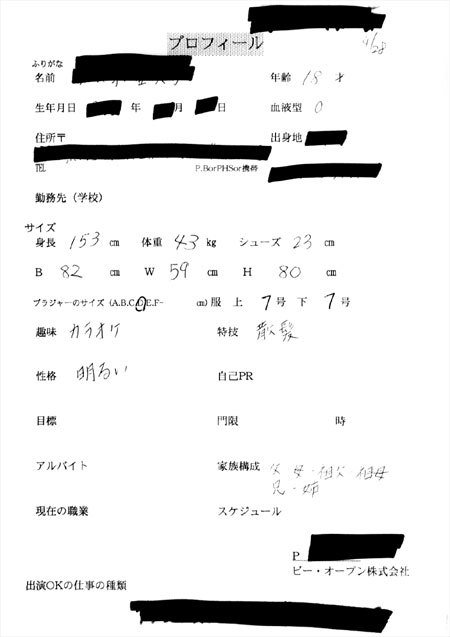 プロフィール
11/28
ふりがな
名前 年齢 18 才
生年月日 年 月 日 血液型 O
住所〒 出身地
TEL P.BorPHSor携帯
勤務先（学校）
サイズ
身長 153 cm 体重 43 kg シューズ 23 cm
B 82 cm W 59 cm H 80 cm
ブラジャーのサイズ (A.B.C.D.E.F- cm) 服 上 7号 下 7号
趣味 カラオケ 特技 散髪
性格 明るい 自己PR
目標 門限 時
アルバイト 家族構成 父 母 祖父 祖母
兄 姉
現在の職業 スケジュール
P
ビー・オーブン株式会社
出演OKの仕事の種類